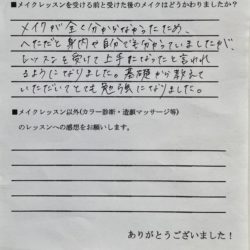 ■メイクレッスンを受ける前と受けた後のメイクはどうかわりましたか?
メイクが全く分からなかったため、
へただと身内や自分でも分かっていましたが、
レッスンを受けて上手になったと言われ
るようになりました。基礎から教えて
いただいてとても勉強になりました。
■メイクレッスン以外(カラー診断・造顔マッサージ等)
のレッスンへの感想をお願いします。
ありがとうございました!